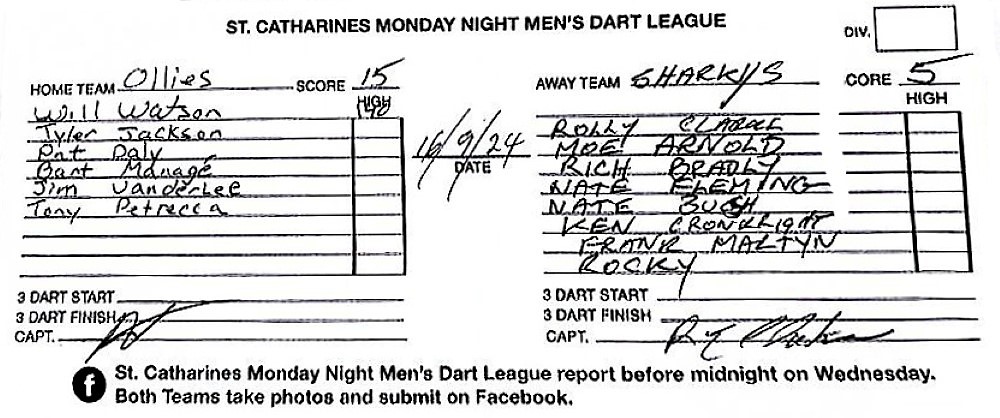 ST. CATHARINES MONDAY NIGHT MEN'S DART LEAGUE
DIV.
HOME TEAM Ollies SCORE 15
HIGH
Will Watson 140
Tyler Jackson
Pat Daly
Bart Manage
Jim Vanderlee
Tony Petrecca
3 DART START
3 DART FINISH
CAPT.
16/9/24
DATE
AWAY TEAM SHARKYS CORE 5
HIGH
ROLLY
MOE ARNOLD
RICH BRADLY
NATE FLEMING
NATE BUSH
KEN CRONKRIGHT
FRANK MARTYN
ROCKY
3 DART START
3 DART FINISH
CAPT.
f St. Catharines Monday Night Men's Dart League report before midnight on Wednesday.
Both Teams take photos and submit on Facebook.